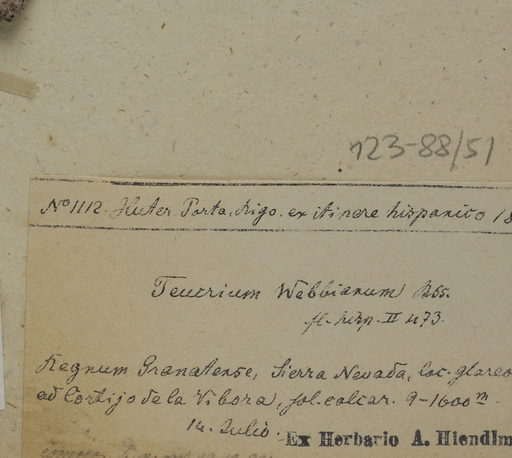 123-88/51
No 1112. Huter, Porta, Rigo. ex itinere hispanico 18
Teucrium Webbianum Bss.
fl. hisp. II 473.
Regnum Granatense, Sierra Nevada, loc. glareo
ad Cortijo de la Vibora, sol. calcar. 9-1600m.
14. Julio.
Ex Herbario A. Hiendlm